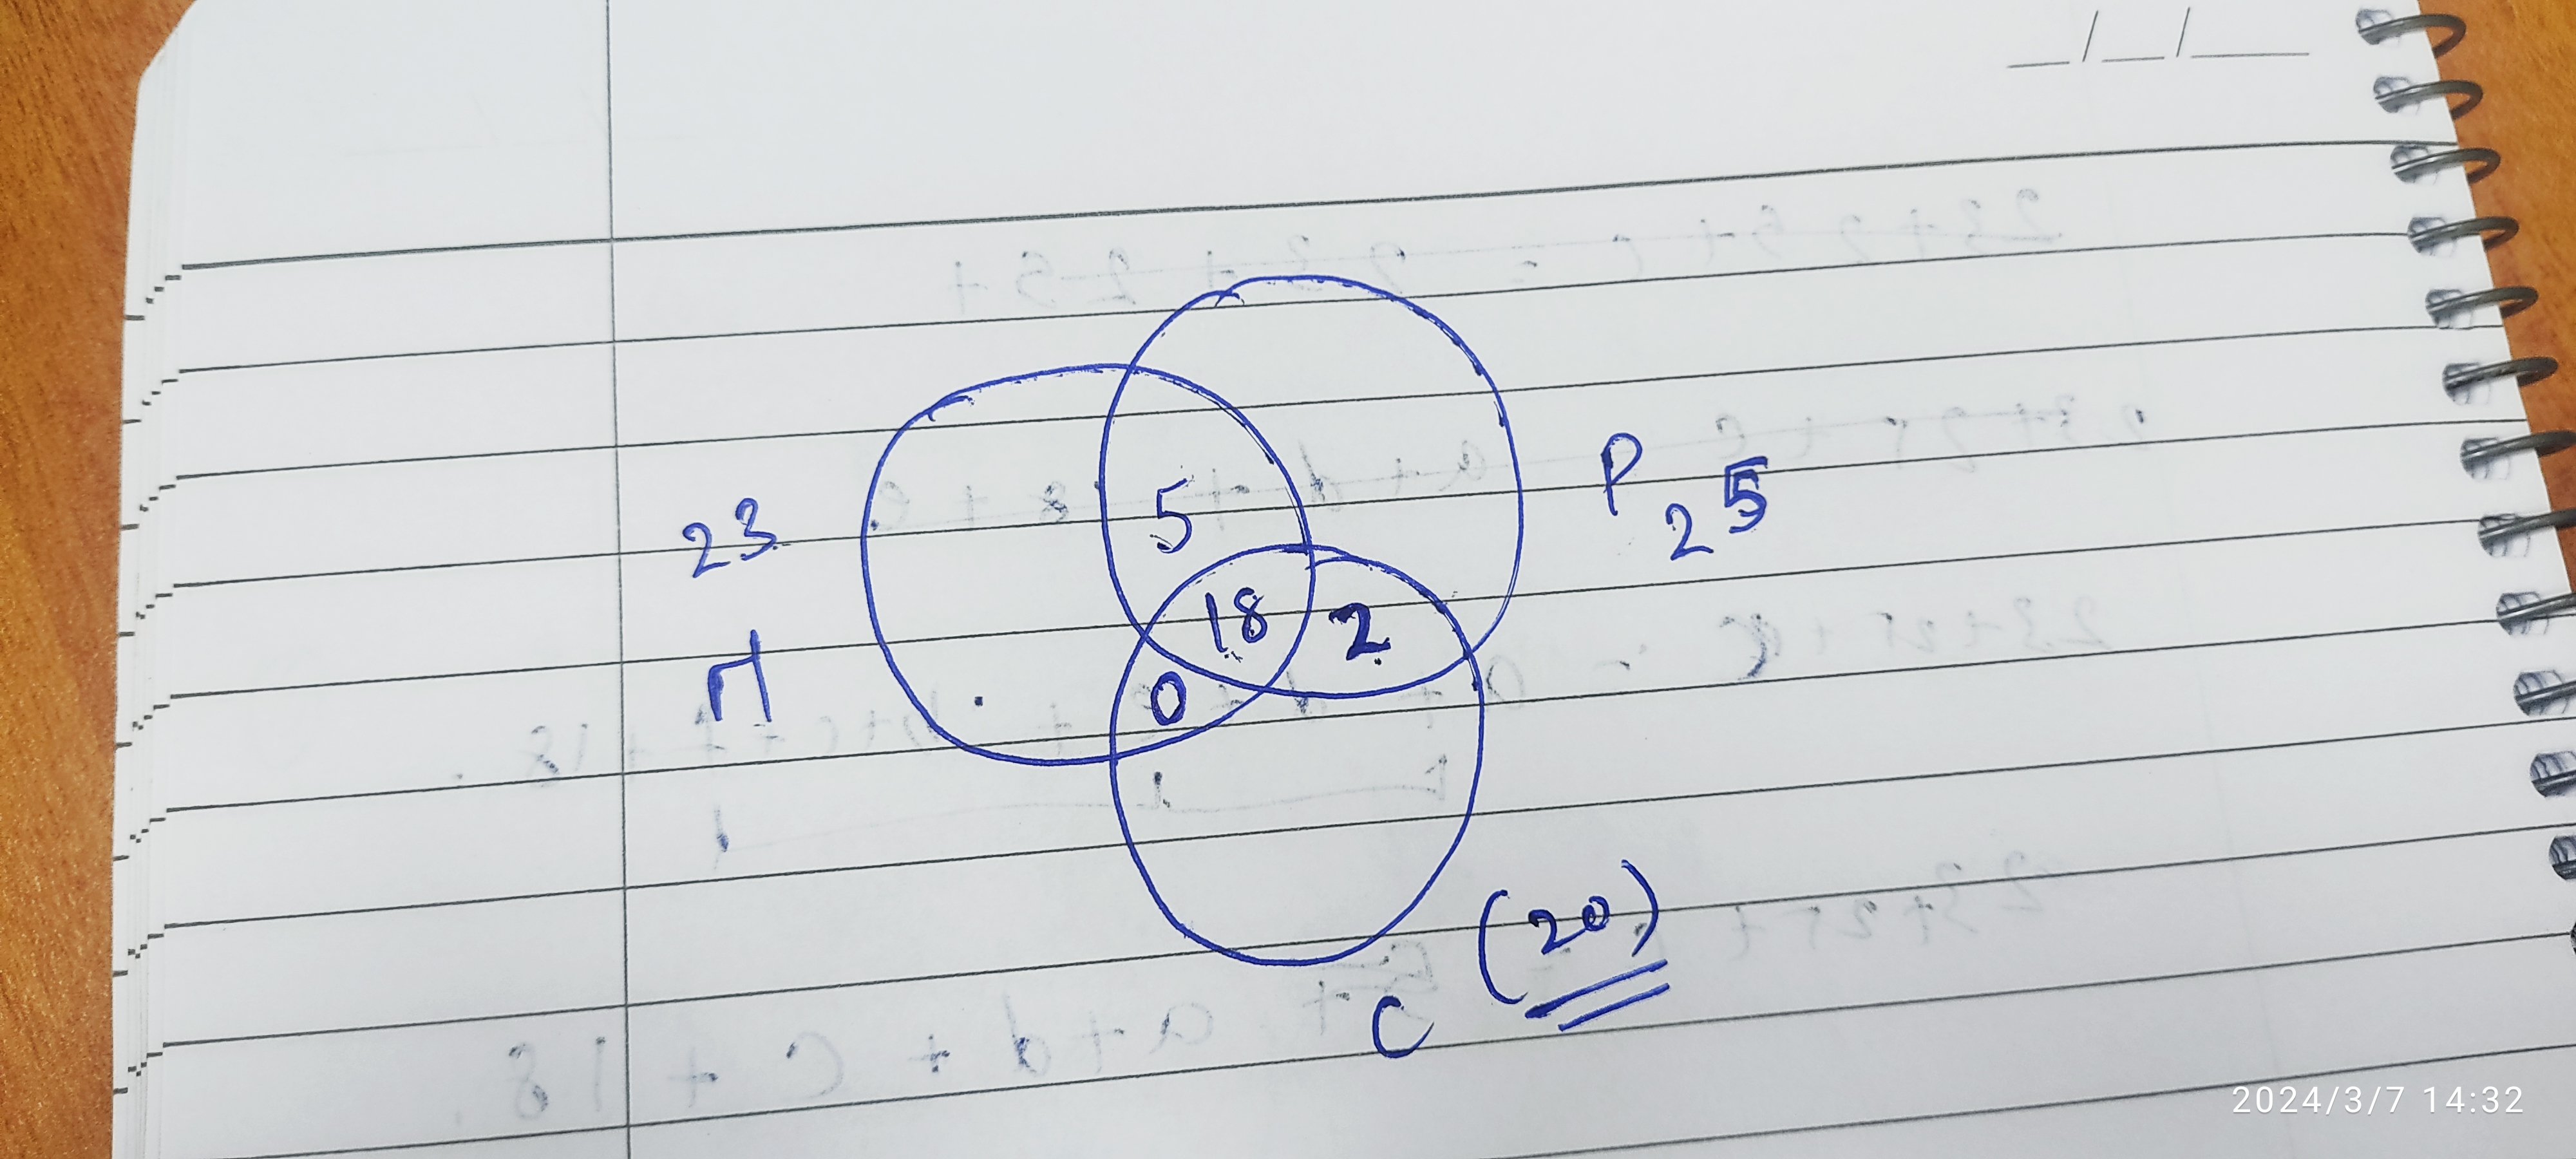 __/__/____
5
P
25
23
18
2
M
0
(20)
C
2024/3/7 14:32